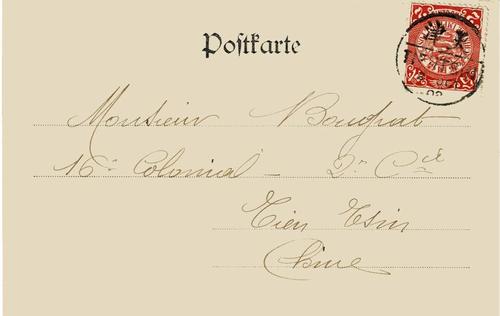 Postkarte
Monsieur Bougrat
16e Colonial - 2e Cie
Tien Tsin
Chine